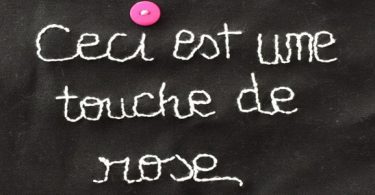 Ceci est une
touche de
rose